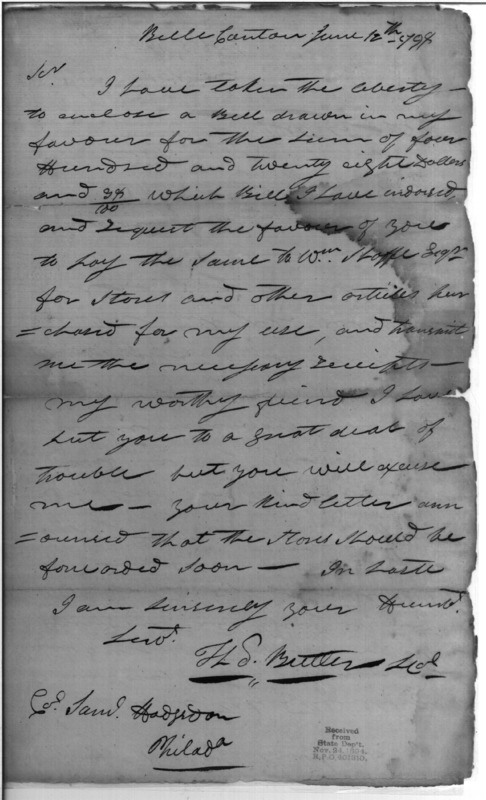 Belle Canton June 12th 1798
Sir
I have taken the liberty
to enclose a Bill drawn in my
favour for the sum of four
Hundred and twenty eight Dollars
and 38/100 which Bill I have indorsed
and Request the favour of you
to pay the same to Wm. Esqr.
for Stores and other articles pur
=chased for my use, and transmit
me the necessary Receipts —
my worthy friend I have
put you to a great deal of
trouble but you will excuse
me — your kind letter ann
=ounced that the Stores should be
forwarded soon — In haste
I am Sincerely your Humb.
Servt.
Butler
Col. Saml. Hodgdon
Philada
Received
from
State Dep't.
Nov. 24, 1894.